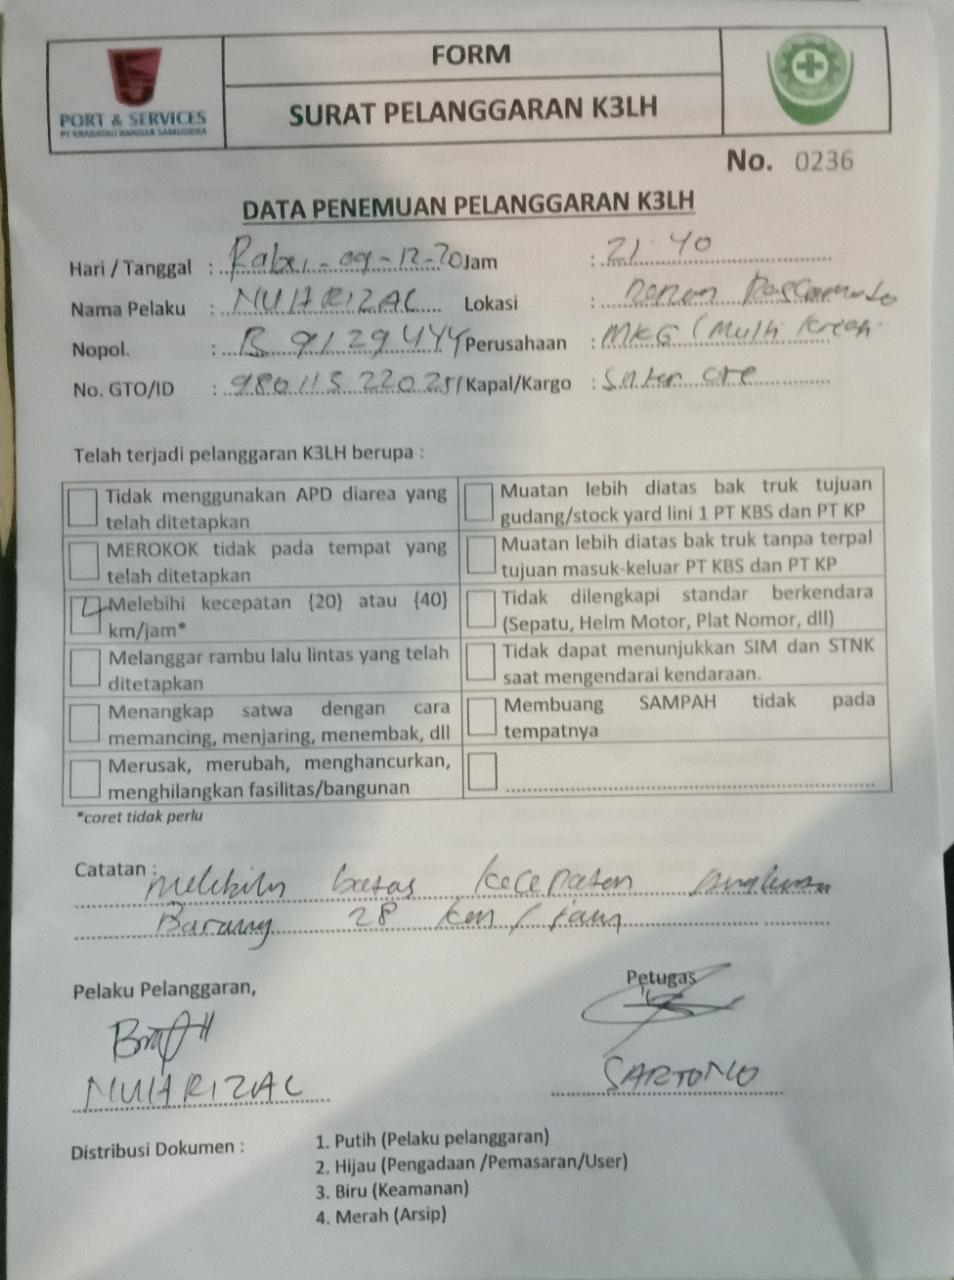 PORT & SERVICES
PT KRAKATAU BANDAR SAMUDERA
FORM
SURAT PELANGGARAN K3LH
No. 0236
DATA PENEMUAN PELANGGARAN K3LH
Hari / Tanggal : Rabu - 09-12-20 Jam : 21.40
Nama Pelaku : NUHARIZAL Lokasi :
Nopol. : B 9129 Perusahaan : MKG (Multi
No. GTO/ID : Kapal/Kargo : Sinter ore
Telah terjadi pelanggaran K3LH berupa :
Tidak menggunakan APD diarea yang
telah ditetapkan
Muatan lebih diatas bak truk tujuan
gudang/stock yard lini 1 PT KBS dan PT KP
MEROKOK tidak pada tempat yang
telah ditetapkan
Muatan lebih diatas bak truk tanpa terpal
tujuan masuk-keluar PT KBS dan PT KP
Melebihi kecepatan {20} atau {40}
km/jam*
Tidak dilengkapi standar berkendara
(Sepatu, Helm Motor, Plat Nomor, dll)
Melanggar rambu lalu lintas yang telah
ditetapkan
Tidak dapat menunjukkan SIM dan STNK
saat mengendarai kendaraan.
Menangkap satwa dengan cara
memancing, menjaring, menembak, dll
Membuang SAMPAH tidak pada
tempatnya
Merusak, merubah, menghancurkan,
menghilangkan fasilitas/bangunan
*coret tidak perlu
Catatan : Melebihi batas kecepatan angkutan
Barang 28 km/jam
Pelaku Pelanggaran,
Petugas
NUHARIZAL
SARTONO
Distribusi Dokumen :
1. Putih (Pelaku pelanggaran)
2. Hijau (Pengadaan /Pemasaran/User)
3. Biru (Keamanan)
4. Merah (Arsip)